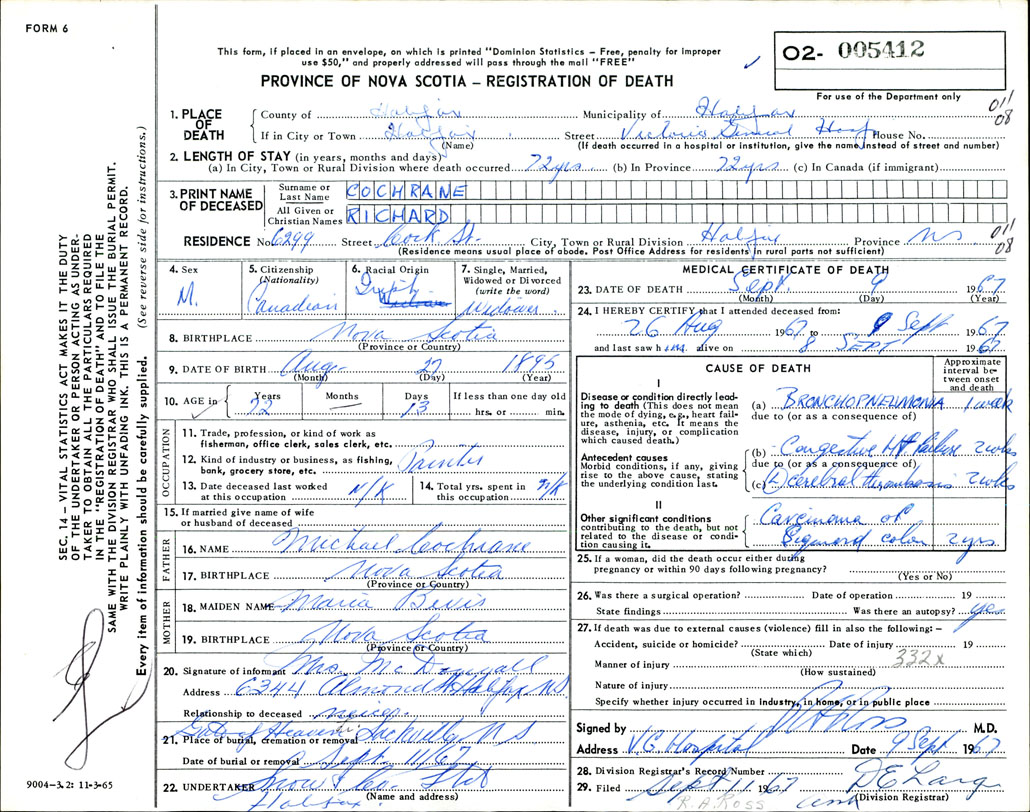 FORM 6
This form, if placed in an envelope, on which is printed "Dominion Statistics – Free, penalty for improper
use $50," and properly addressed will pass through the mail "FREE"
PROVINCE OF NOVA SCOTIA – REGISTRATION OF DEATH
O2- 005412
For use of the Department only
011
08
1. PLACE OF DEATH
County of Halifax Municipality of Halifax
If in City or Town Halifax Street Victoria General Hosp House No.
(Name) (If death occurred in a hospital or institution, give the name instead of street and number)
2. LENGTH OF STAY (in years, months and days)
(a) In City, Town or Rural Division where death occurred 72yrs (b) In Province 72yrs (c) In Canada (if immigrant)
3. PRINT NAME OF DECEASED
Surname or Last Name COCHRANE
All Given or Christian Names RICHARD
RESIDENCE No. 6299 Street Cork St. City, Town or Rural Division Halifax Province NS
011
08
(Residence means usual place of abode. Post Office Address for residents in rural parts not sufficient)
4. Sex M.
5. Citizenship (Nationality) Canadian
6. Racial Origin Irish
7. Single, Married, Widowed or Divorced (write the word) Widower.
8. BIRTHPLACE Nova Scotia
(Province or Country)
9. DATE OF BIRTH Aug. 27 1895
(Month) (Day) (Year)
10. AGE in Years 72 Months Days 13 If less than one day old
hrs. or min.
OCCUPATION
11. Trade, profession, or kind of work as
fisherman, office clerk, sales clerk, etc.
12. Kind of industry or business, as fishing,
bank, grocery store, etc. Painter
13. Date deceased last worked
at this occupation N/K
14. Total yrs. spent in
this occupation N/K
15. If married give name of wife
or husband of deceased
FATHER
16. NAME Michael Cochrane
17. BIRTHPLACE Nova Scotia
(Province or Country)
MOTHER
18. MAIDEN NAME Maria Bevis
19. BIRTHPLACE Nova Scotia
(Province or Country)
20. Signature of informant Mrs. McDougall
Address 6344 Almond St Halifax NS
Relationship to deceased niece.
Gate of Heaven Sackville, NS
21. Place of burial, cremation or removal
Date of burial or removal Sept. 11/67
22. UNDERTAKER Snow & Co. Ltd
(Name and address)
Halifax
MEDICAL CERTIFICATE OF DEATH
23. DATE OF DEATH Sept. 9 1967
(Month) (Day) (Year)
24. I HEREBY CERTIFY that I attended deceased from:
26 Aug 1967 to 9 Sept 1967
and last saw him alive on 8 SEPT 1967
CAUSE OF DEATH
Approximate interval between onset and death
I
Disease or condition directly leading to death (This does not mean the mode of dying, e.g., heart failure, asthenia, etc. It means the disease, injury, or complication which caused death.)
(a) BRONCHOPNEUMONIA 1 week
due to (or as a consequence of)
Antecedent causes
Morbid conditions, if any, giving rise to the above cause, stating the underlying condition last.
(b) Congestive Ht failure 2 wks
due to (or as a consequence of)
(c) (L) cerebral thrombosis 2 wks
II
Other significant conditions
contributing to the death, but not related to the disease or condition causing it.
Carcinoma of
Sigmoid colon 2 yrs
25. If a woman, did the death occur either during
pregnancy or within 90 days following pregnancy?
(Yes or No)
26. Was there a surgical operation? Date of operation 19
State findings Was there an autopsy? yes
27. If death was due to external causes (violence) fill in also the following: –
Accident, suicide or homicide? Date of injury 19
(State which)
332x
Manner of injury
(How sustained)
Nature of injury
Specify whether injury occurred in industry, in home, or in public place
Signed by M.D.
Address V.G. Hospital Date 9 Sept 1967
28. Division Registrar's Record Number
29. Filed Sept 11 1967 D E Lang
(Division Registrar)
R.A. ROSS
SEC. 14 – VITAL STATISTICS ACT MAKES IT THE DUTY
OF THE UNDERTAKER OR PERSON ACTING AS UNDER-
TAKER TO OBTAIN ALL THE PARTICULARS REQUIRED
IN THE "REGISTRATION OF DEATH" AND TO FILE THE
SAME WITH THE DIVISION REGISTRAR WHO SHALL ISSUE THE BURIAL PERMIT.
WRITE PLAINLY WITH UNFADING INK. THIS IS A PERMANENT RECORD.
Every item of information should be carefully supplied. (See reverse side for instructions.)
9004-3.2: 11-3-65